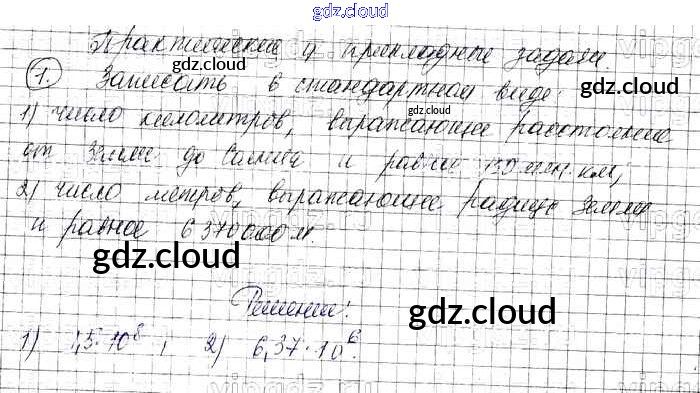 gdz.cloud
Практические и прикладные задачи.
gdz.cloud
1. Записать в стандартном виде:
gdz.cloud
1) число километров, выражающее расстояние
gdz.cloud
от Земли до Солнца и равное 150 млн. км,
gdz.cloud
2) число метров, выражающее радиус Земли
и равное 6 370 000 м.
gdz.cloud
Решение:
gdz.cloud
1) 1,5·10⁸ ; 2) 6,37·10⁶.